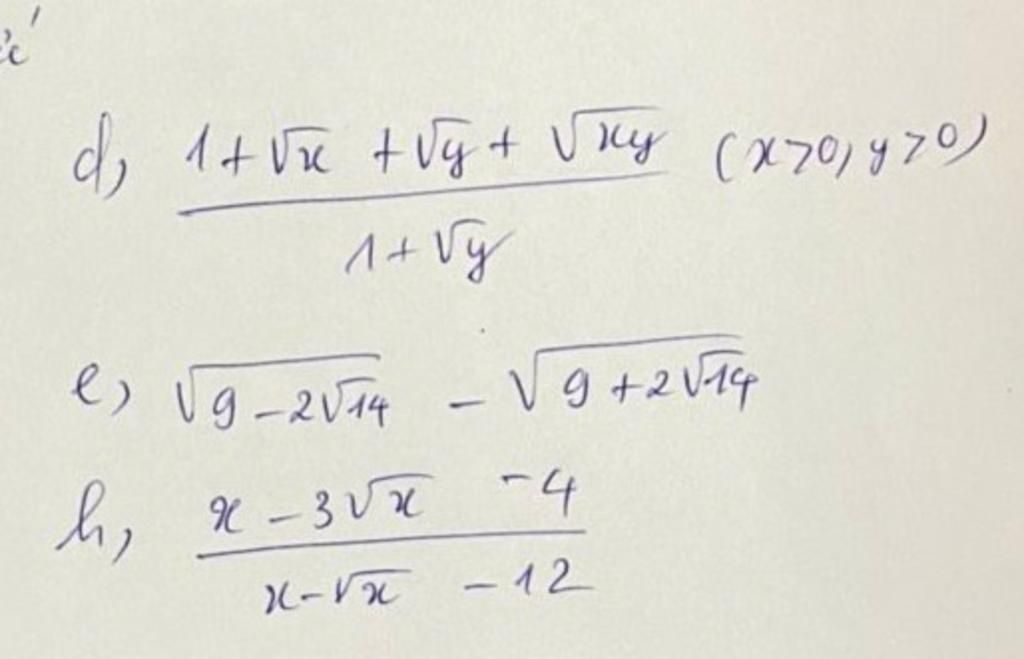 d, (1+√x +√y + √xy)/(1+√y) (x>0, y>0)
e, √(9-2√14) - √(9+2√14)
h, (x-3√x -4)/(x-√x -12)